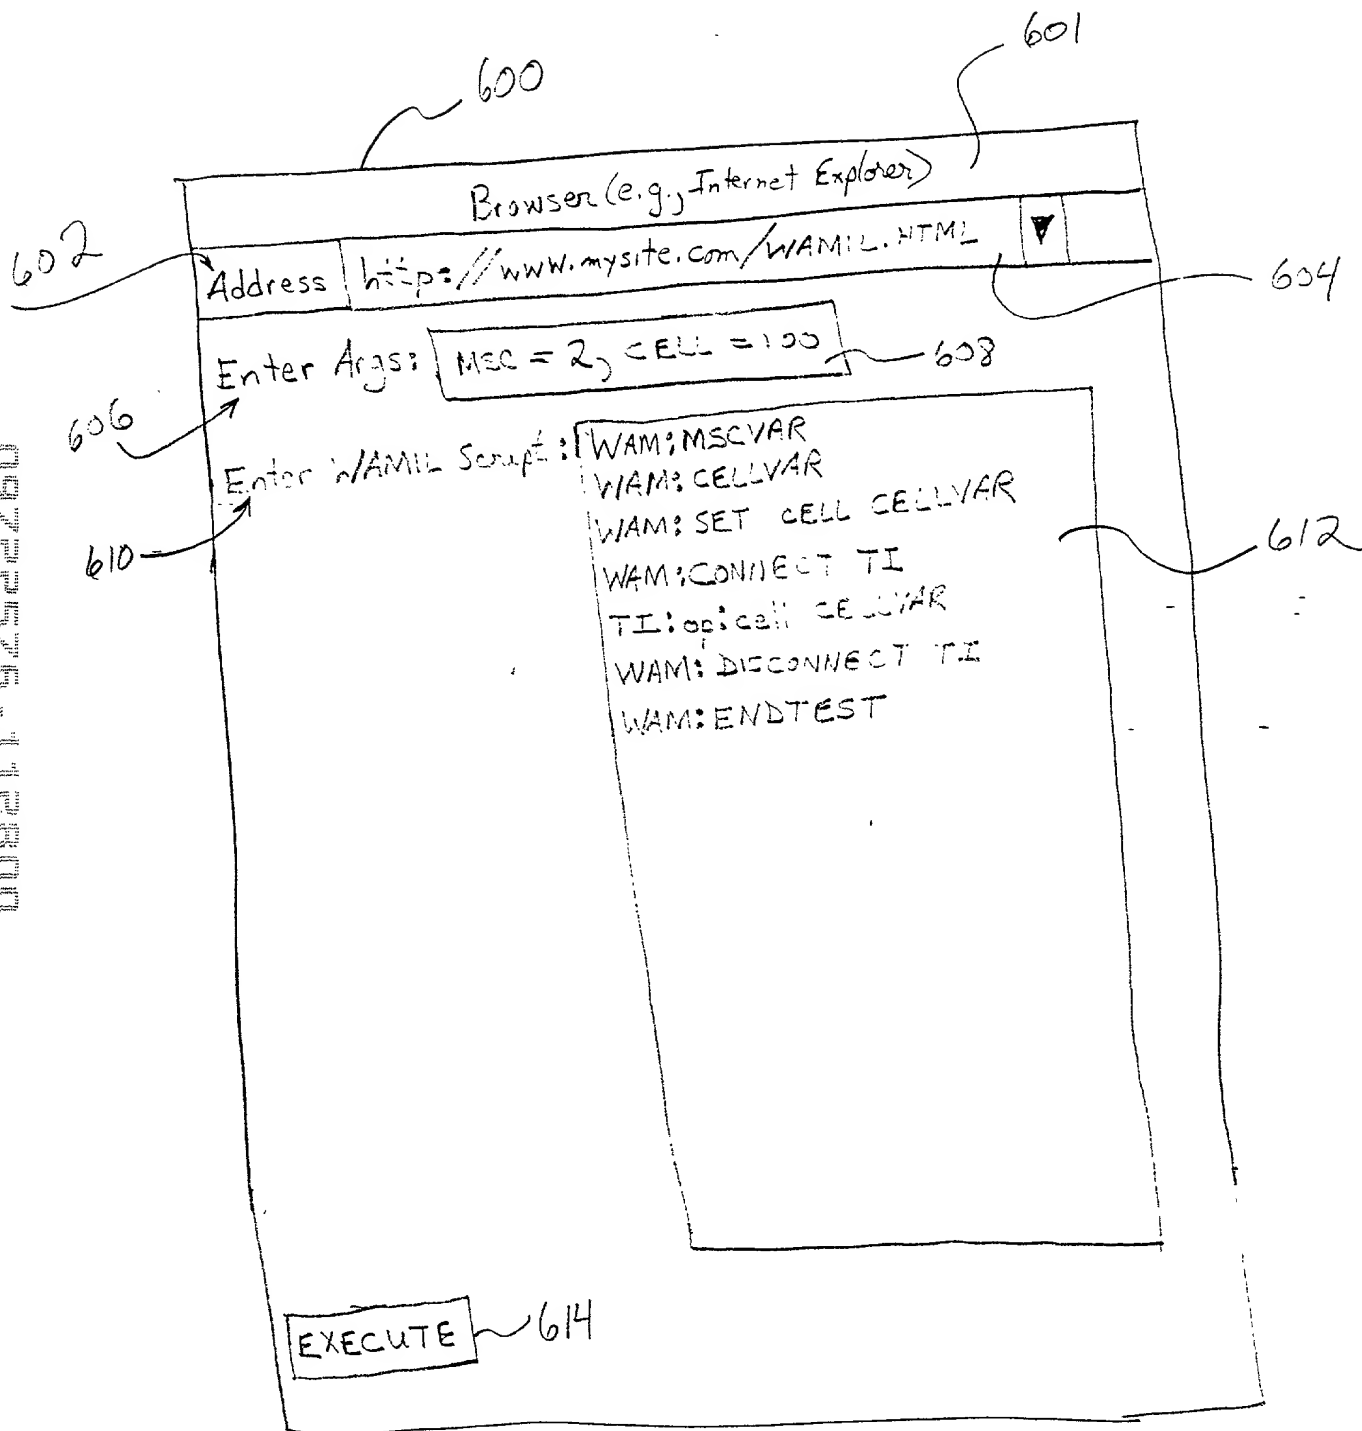 600
601
Browser (e.g., Internet Explorer)
602
Address http://www.mysite.com/WAMIL.HTML
604
Enter Args: MSC = 2, CELL = 100
608
606
Enter WAMIL Script: WAM:MSCVAR
WAM:CELLVAR
WAM:SET CELL CELLVAR
612
610
WAM:CONNECT TI
TI:op:cell CELLVAR
WAM:DISCONNECT TI
WAM:ENDTEST
EXECUTE
614